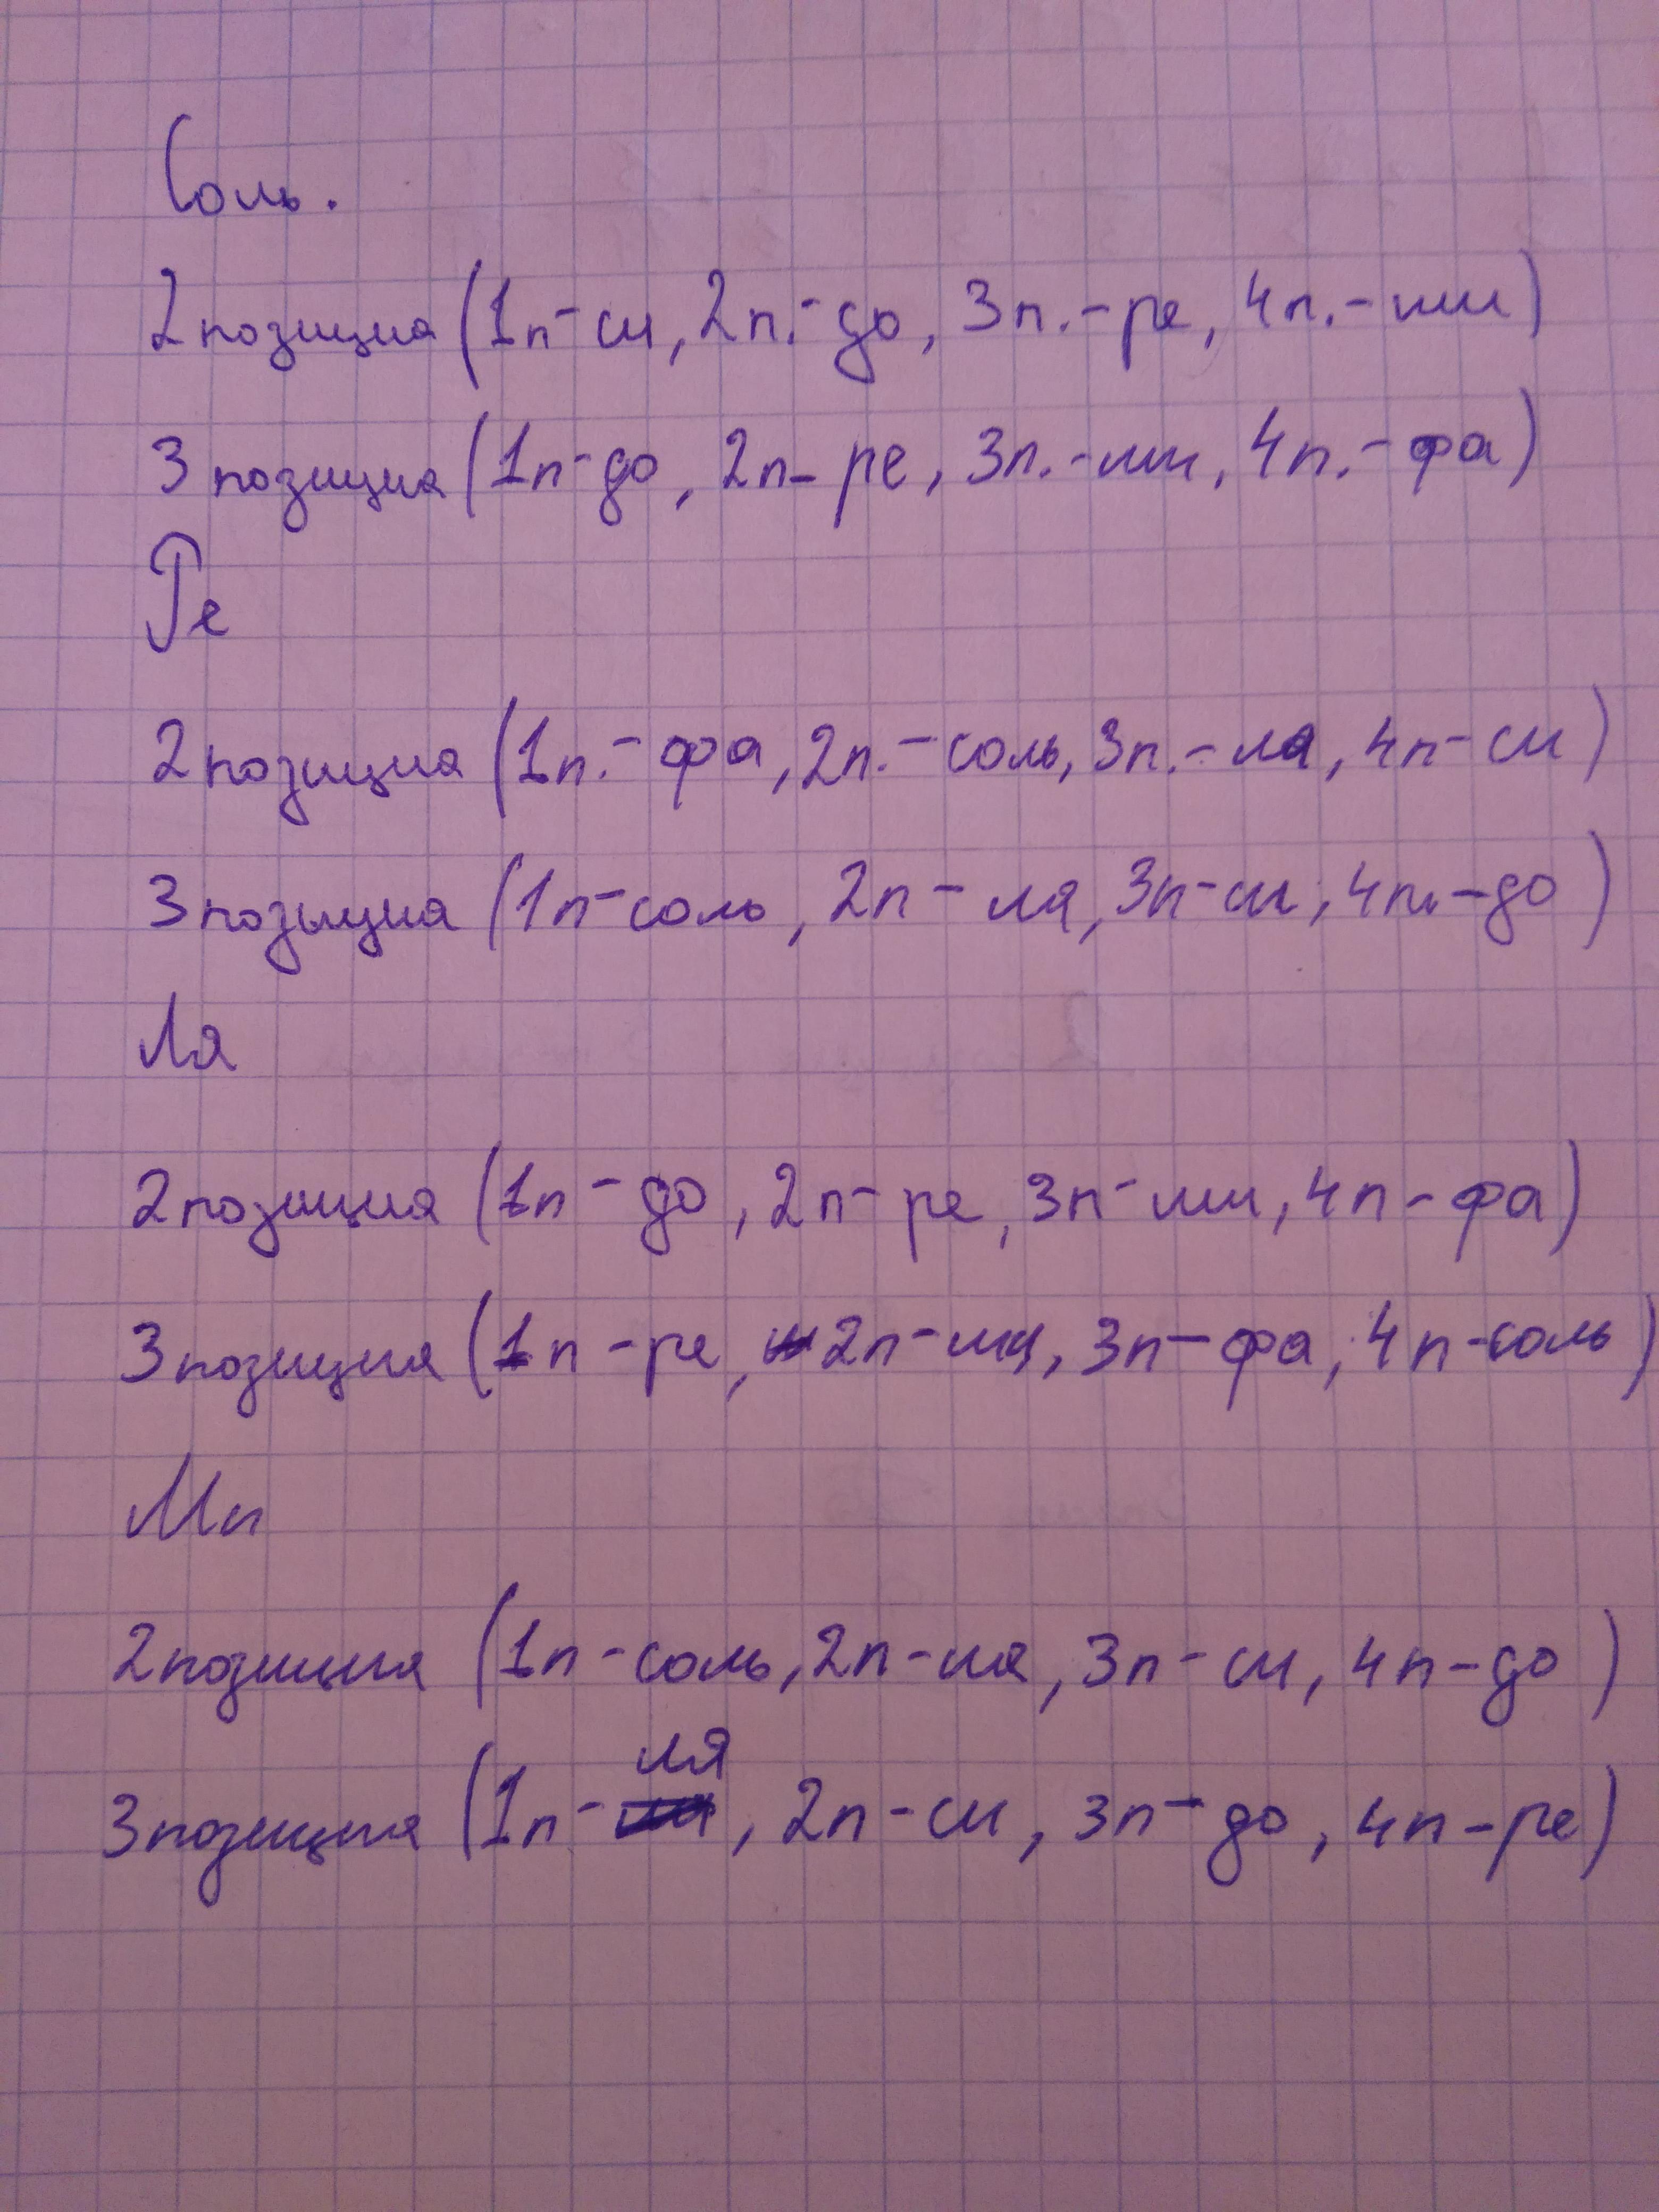 Соль.
2 позиция (1п-си, 2п.-до, 3п.-ре, 4п.-ми)
3 позиция (1п-до, 2п-ре, 3п.-ми, 4п.-фа)
Ре
2 позиция (1п.-фа, 2п.-соль, 3п.-ля, 4п-си)
3 позиция (1п-соль, 2п-ля, 3п-си, 4п.-до)
Ля
2 позиция (1п-до, 2п-ре, 3п-ми, 4п-фа)
3 позиция (1п-ре, 2п-ми, 3п-фа, 4п-соль)
Ми
2 позиция (1п-соль, 2п-ля, 3п-си, 4п-до)
3 позиция (1п-ля, 2п-си, 3п-до, 4п-ре)